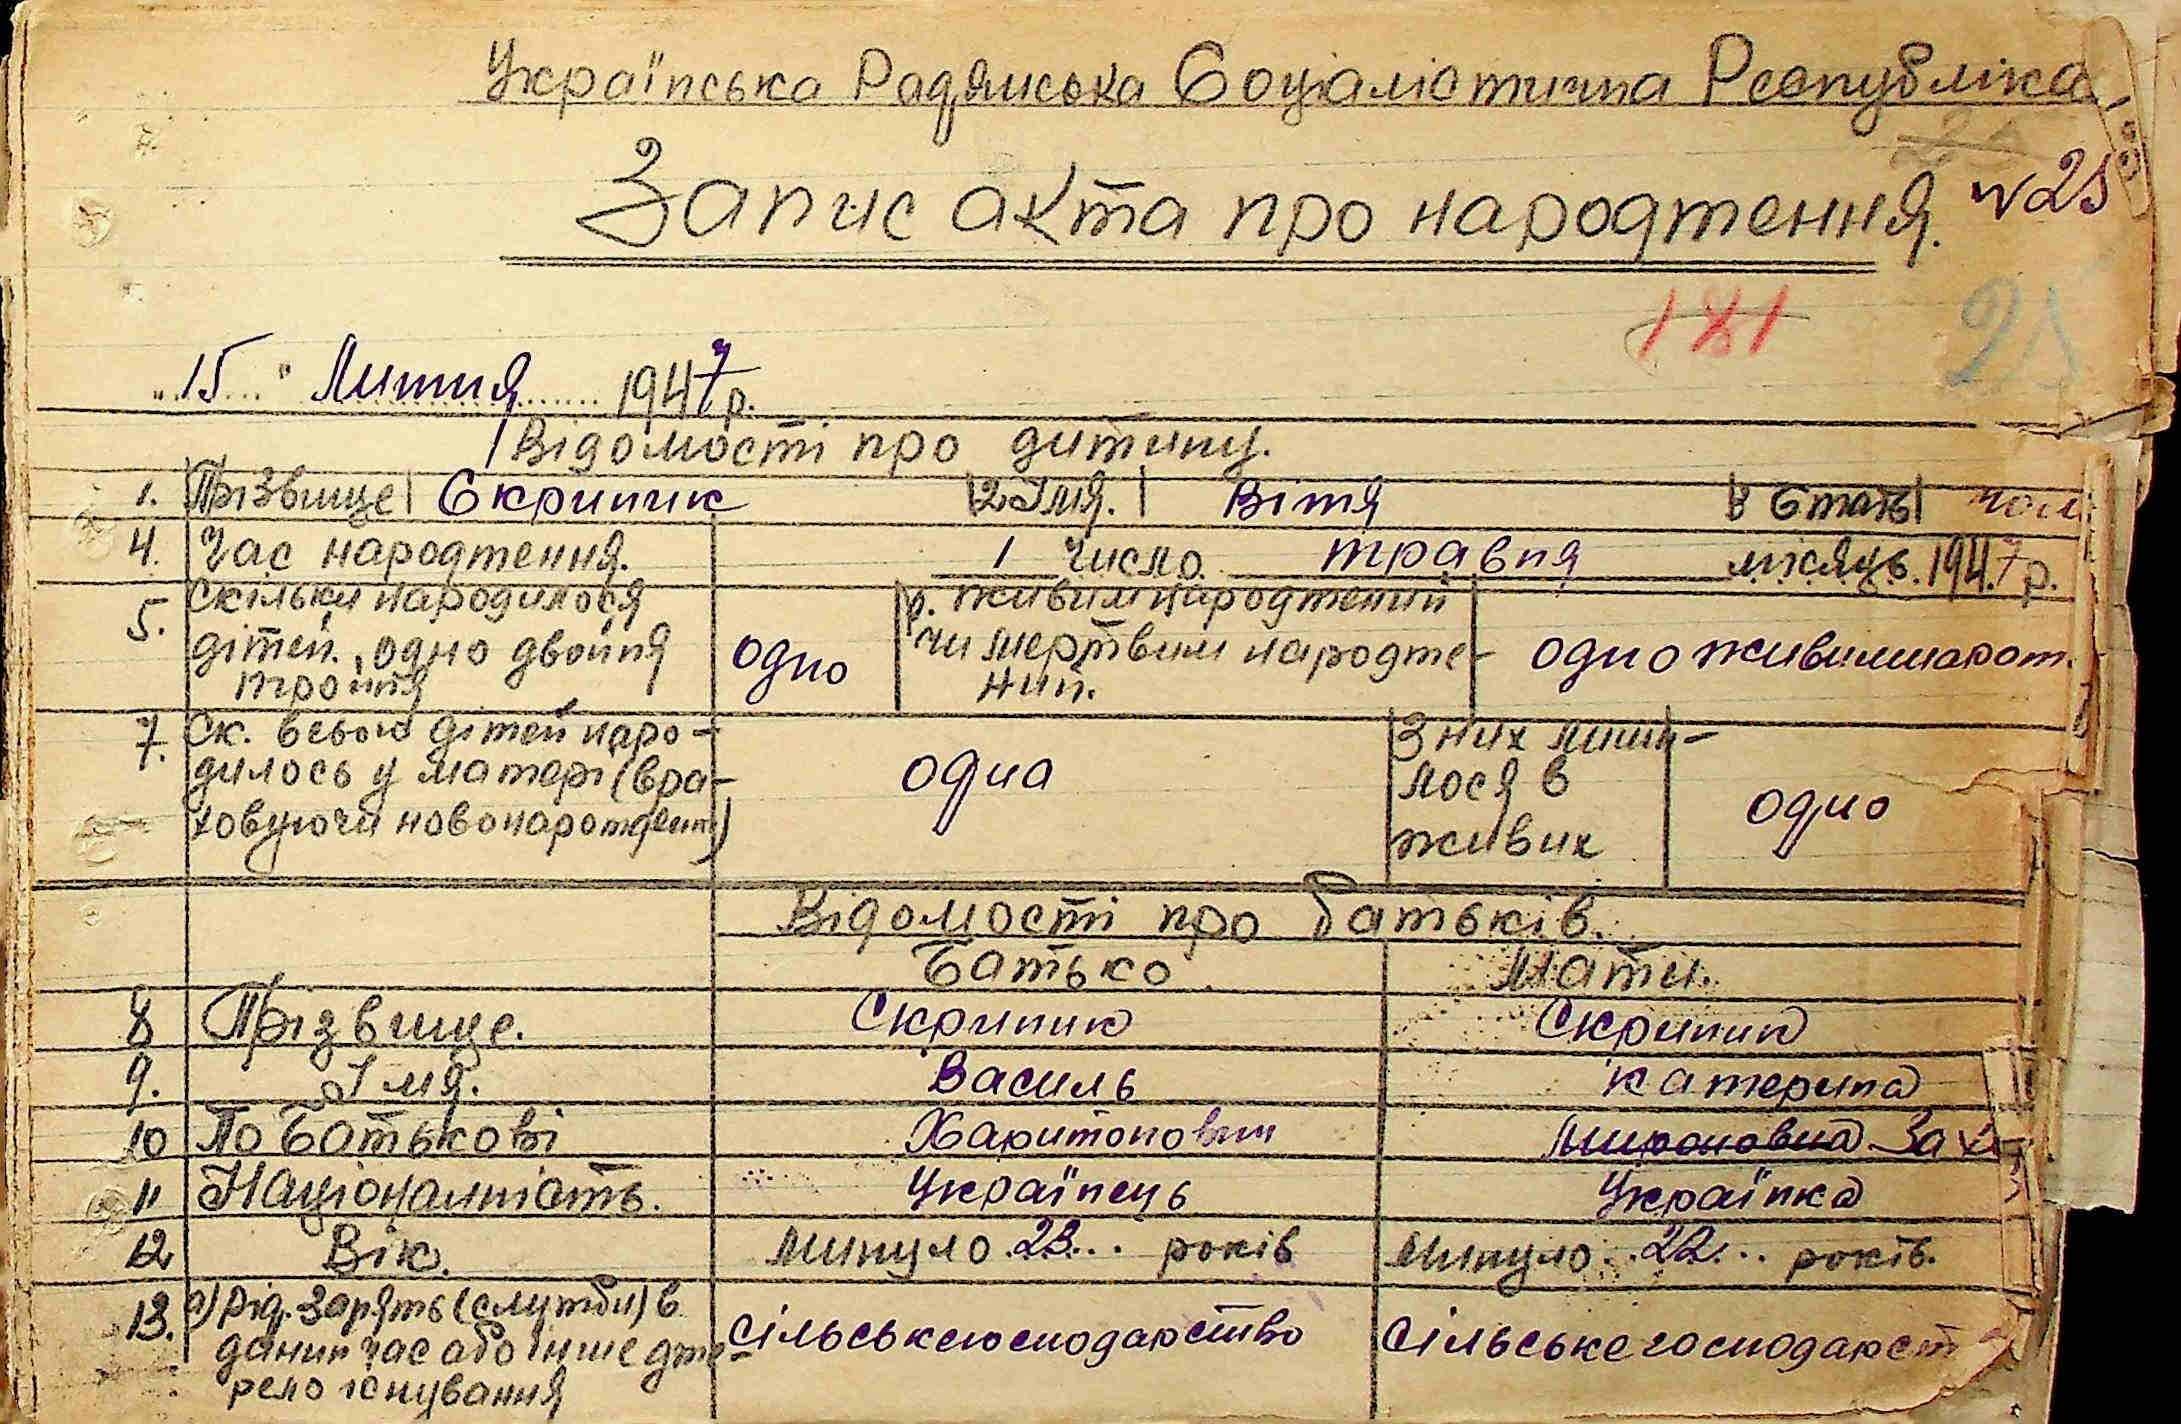 Українська Радянська Соціалістична Республіка
Запис акта про народження. № 25
181 25
"15" Липня 1947 р.
Відомості про дитину.
1. Прізвище Скрипник 2 Імя. Вітя 3 Стать чол
4. Час народження. 1 число травня місяць 1947 р.
5. Скільки народилося дітей, одно двойня тройня
одно
р. живим народжений чи мертвим народже-ний.
одно живимнарож.
7. Ск. всього дітей наро-
дилось у матері (вра-
ховуючи новонарожден)
одна
З них лиши-
лося в
живих
одно
Відомості про батьків.
Батько Мати.
8 Прізвище. Скрипник Скрипник
9. Імя. Василь Катерина
10 По батькові Харитонович Мироновна За
11 Національність. Українець Українка
12 Вік. минуло 23 років минуло 22 років.
13. а) Рід. занять (служби) в
даний час або інше дже-
рело існування
сільськегосподарство сільськегосподарст